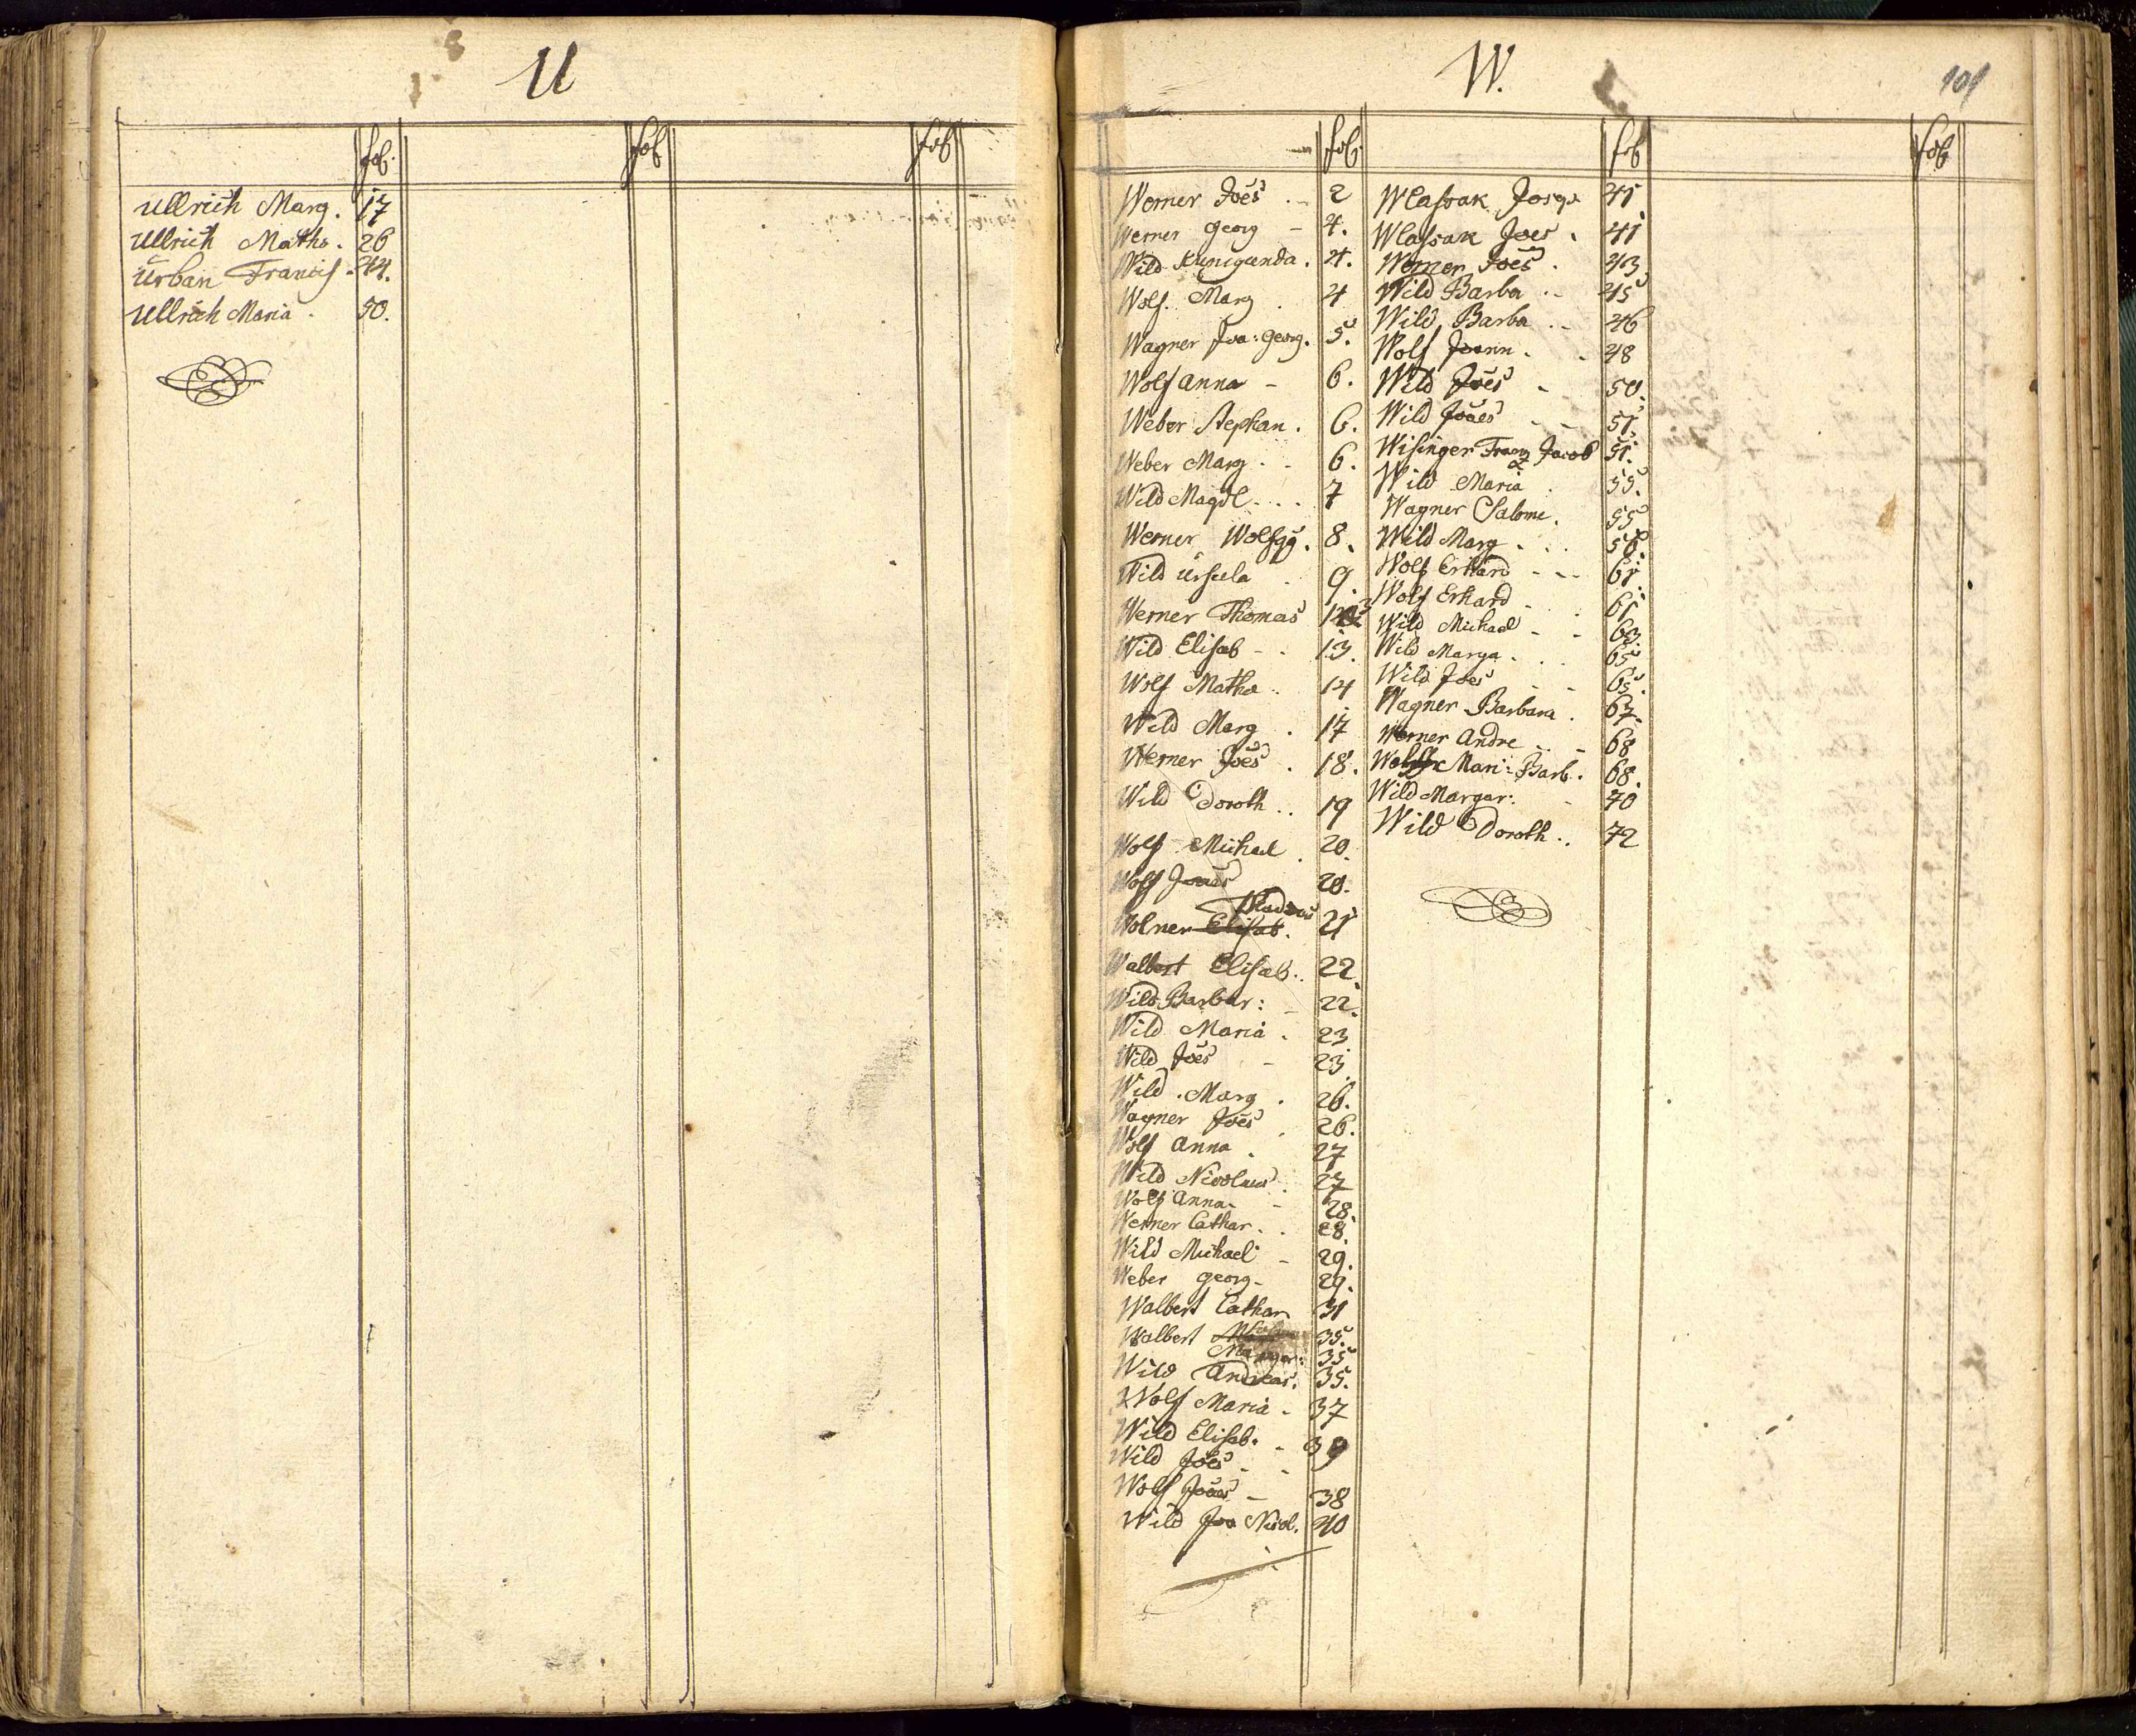 U
fol.
fol
fol
Ullrich Marg. 17
Ullrich Maths. 26
Urban Francis. 44.
Ullrich Maria. 50.
W.
101
fol.
fol
fol
Werner Joes .. 2
Werner Georg - 4.
Wild Kunigunda. 4.
Wolf. Marg . 4
Wagner Joa: Georg. 5.
Wolf Anna - 6.
Weber Stephan. 6.
Weber Marg . - 6.
Wild Magdl... 7
Werner Wolfgg. 8.
Wild Ursula . 9.
Werner Thomas
Wild Elisab - . 13.
Wolf Matha .. 14
Wild Marg . 17
Werner Joes . 18.
Wild Doroth .. 19
Wolf Michael . 20.
Wolf Joaes 20.
Wolner Elisab. 21
Walbert Elisab. 22.
Wild Barbar: - 22.
Wild Maria . 23
Wild Joes - 23.
Wild . Marg . 26.
Wagner Joes . 26.
Wolf Anna . 27
Wild Nicolaus . 27
Wolf Anna - 28.
Werner Cathar.. 28.
Wild Michael - 29.
Weber Georg - 29.
Walbert Cathar 31
Walbert 35.
Margar: 35
Wild Andreas. 35.
Wolf Maria - 37
Wild Elisab. -
Wild Joes - -
Wolf Joaes - 38
Wild Joa Nicol. 40
Wlassak Joseph 41
Wlassak Joes . 41
Werner Joes . 43
Wild Barba .. 45
Wild Barba .. 46
Wolf Joann . . 48
Wild Joes - 50.
Wild Joaes - - 51.
Wisinger Franz Jacob 51.
Wild Maria . 55.
Wagner Salome. 55
Wild Marg . . . 56.
Wolf Erhard - - - 61.
Wolf Erhard - . 61
Wild Michael - - 63.
Wild Marga . . . 65
Wild Joes - - 65.
Wagner Barbara . 67.
Werner Andre .. - 68
Mari: Barb. 68.
Wild Margar: - 70
Wild Doroth .. 72